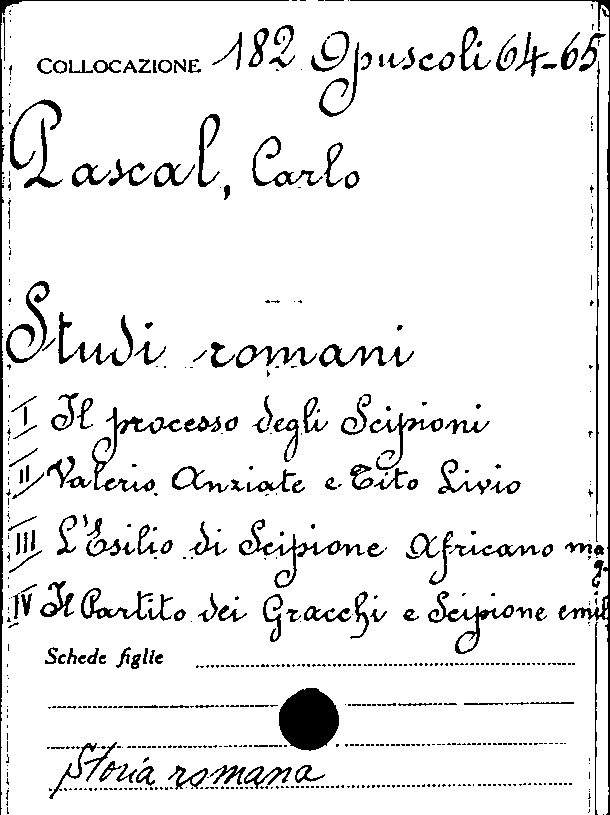 COLLOCAZIONE 182 Opuscoli 64-65
Pascal, Carlo
Studi romani
I Il processo degli Scipioni
II Valerio Anziate e Tito Livio
III L'Esilio di Scipione Africano mag.
IV Il Partito dei Gracchi e Scipione emil
Schede figlie
Storia romana